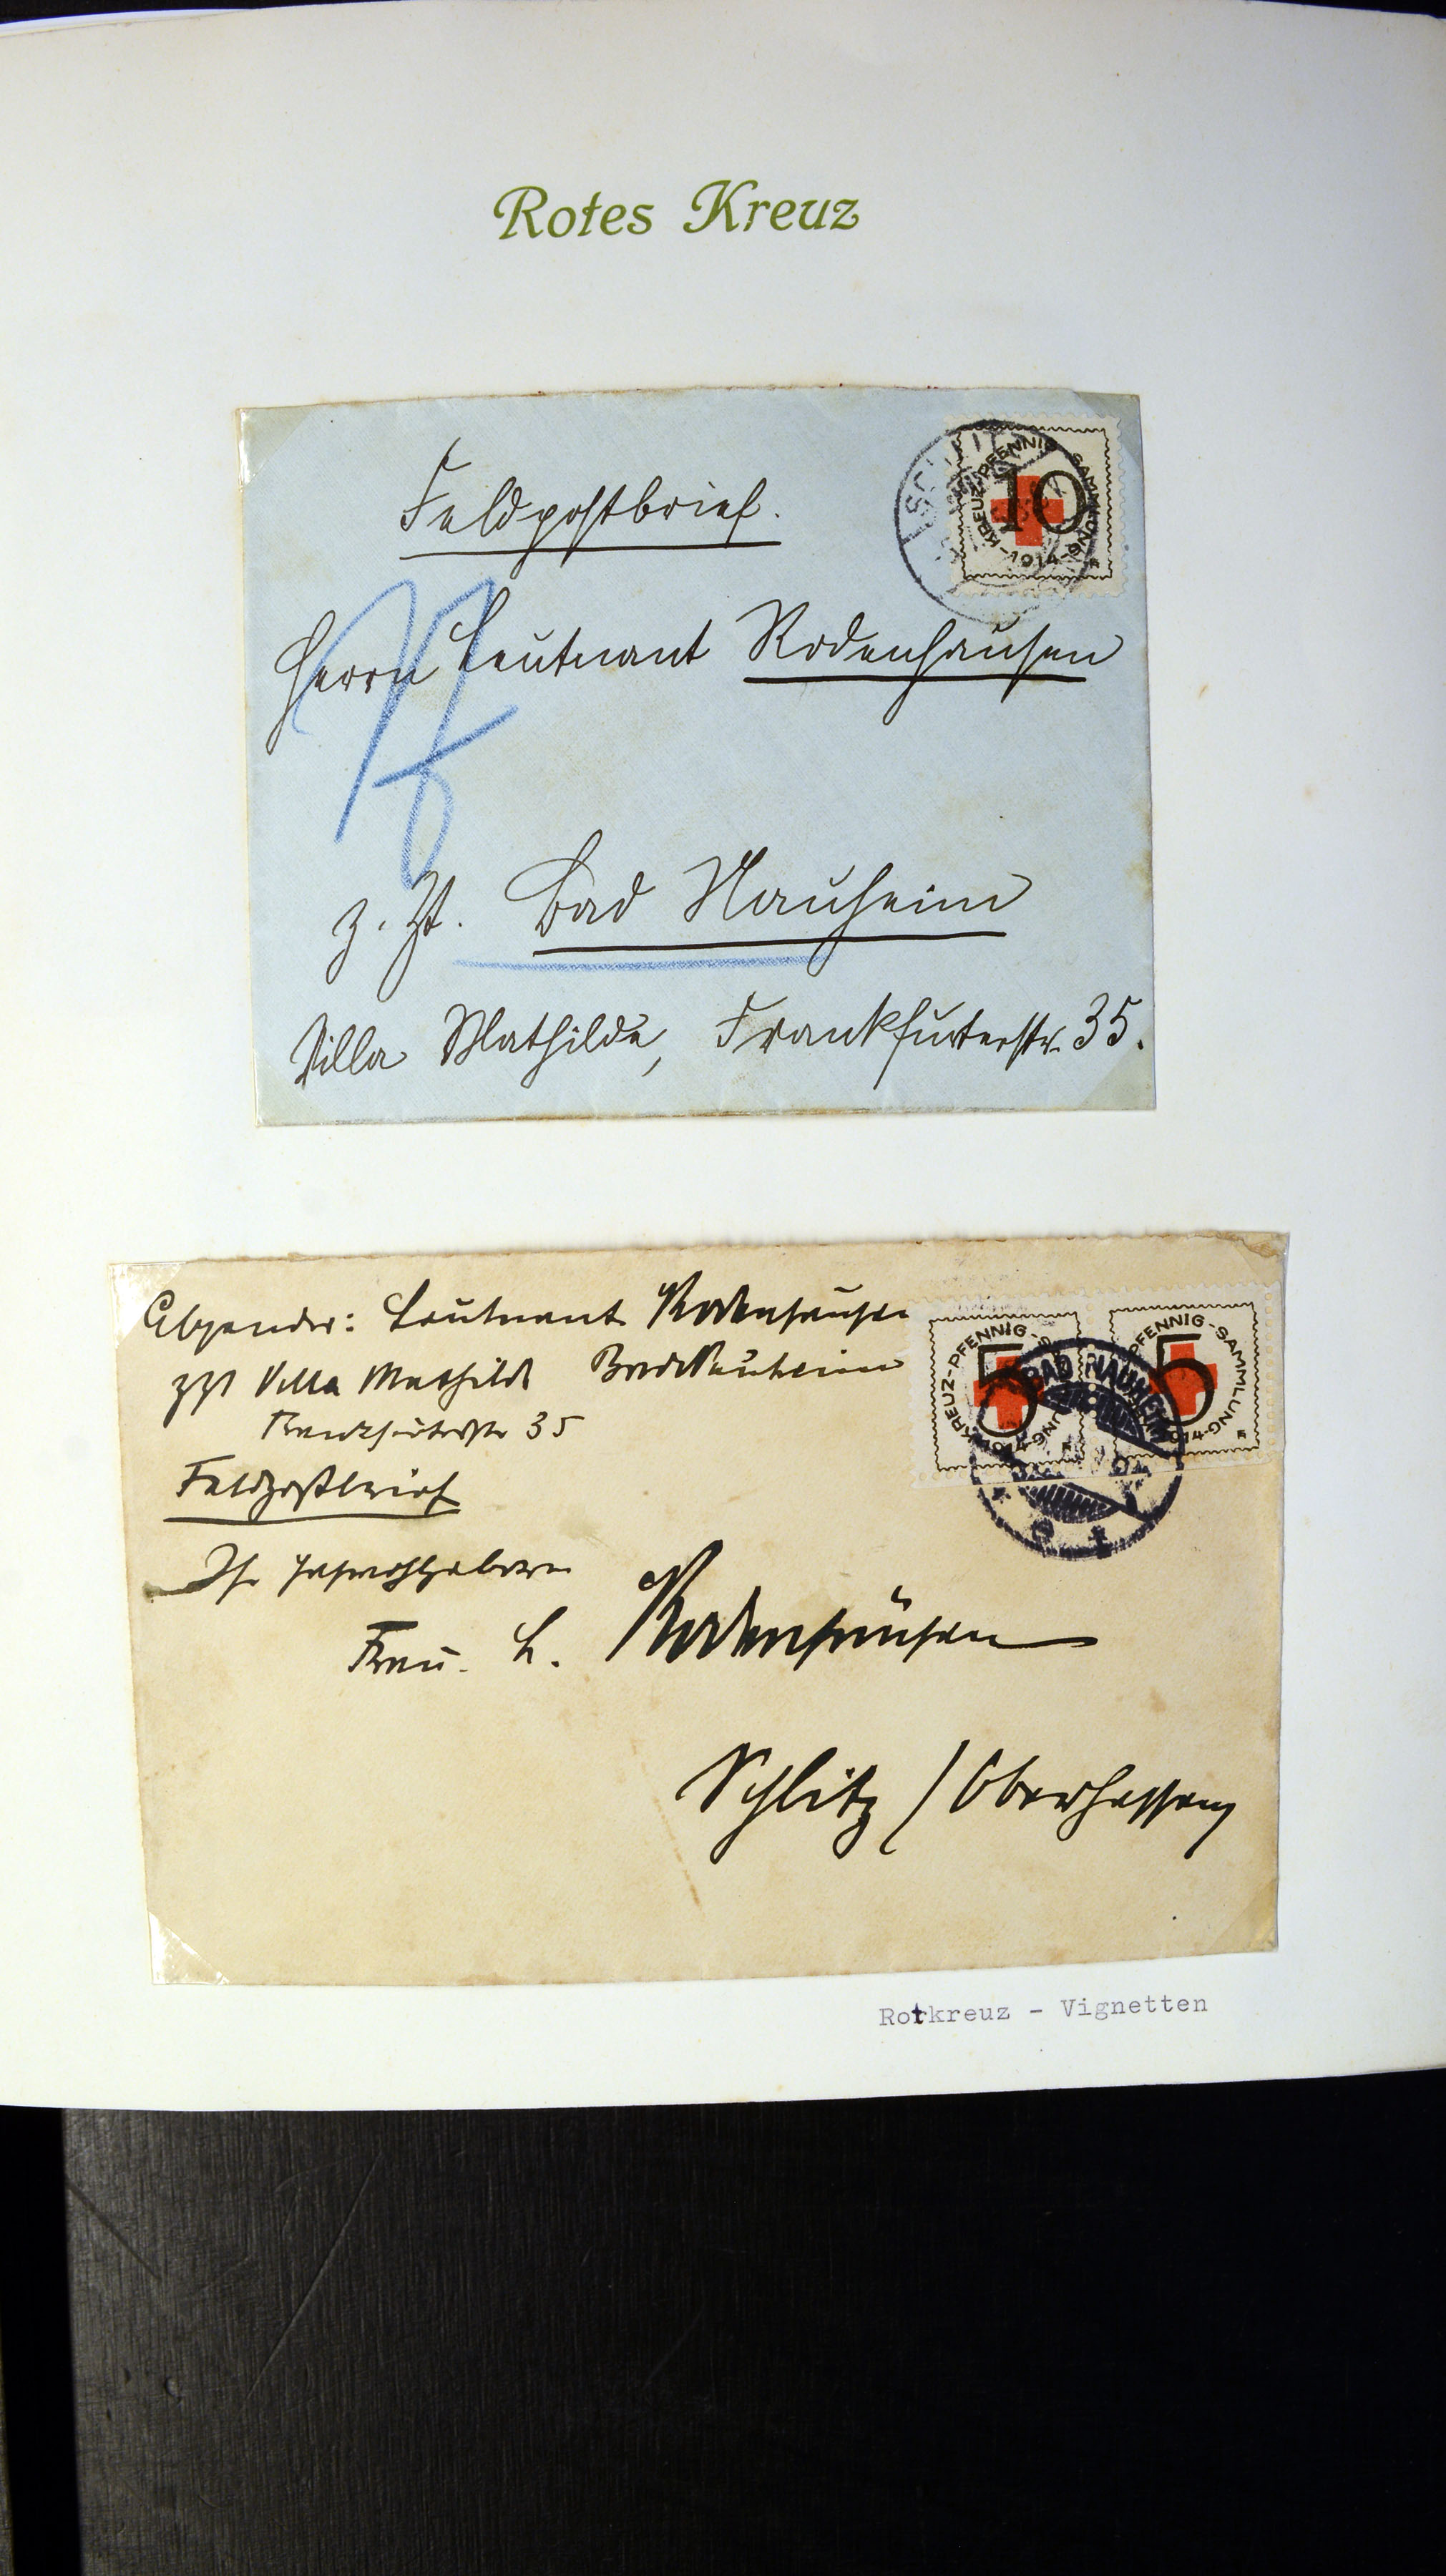 Rotes Kreuz
Feldpostbrief.
KREUZ-PFENNIG SAMMLUNG
10
-1914-
Herrn Leutnant Rodenhausen
z. Zt. Bad Nauheim
Villa Mathilde, Frankfurterstr. 35.
Absender: Leutnant Rodenhausen
zZt Villa Mathilde Bad Nauheim
Frankfurterstr 35
KREUZ-PFENNIG-
5
1914
PFENNIG-SAMMLUNG-
5
1914
BAD NAUHEIM
Feldpostbrief
Ihr Hochwohlgeboren
Frau L. Rodenhausen
Schlitz / Oberhessen
Rotkreuz - Vignetten